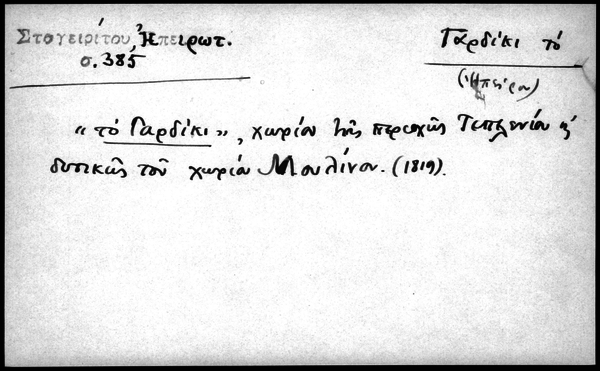 Στογειρίτου, Ἠπειρωτ.
σ. 385
Γαρδίκι τό
(Ἠπείρου)
"τό Γαρδίκι", χωρίον τῆς περιοχῆς Τεπελενίου κ'
δυτικῶς τοῦ χωρίου Μουλίνου. (1819).